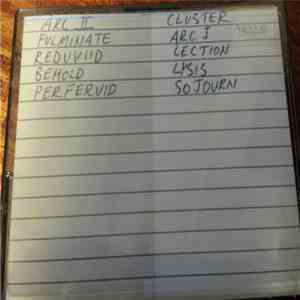 ARC II
FULMINATE
REDUVIID
BEHOLD
PERFERVID
CLUSTER
ARC I
LECTION
LYSIS
SOJOURN